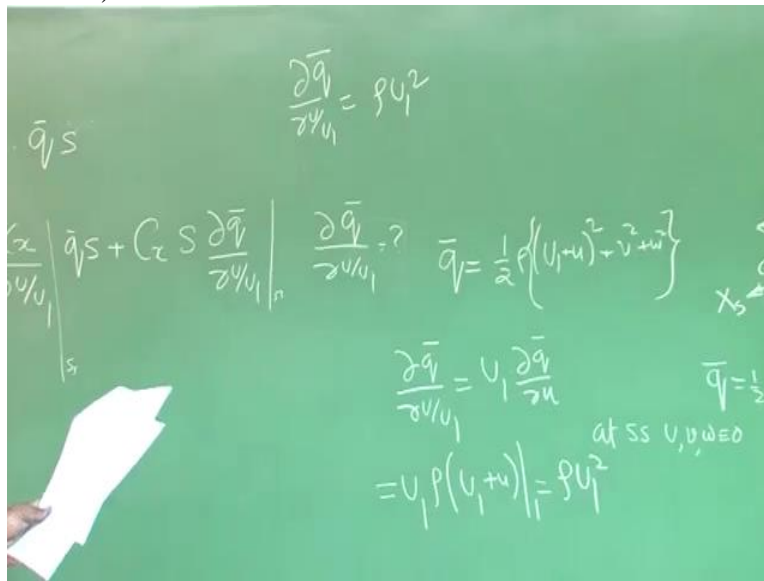 ∂q̄/∂u/U₁ = ρU₁²
q̄ S
∂u/U₁ |ₛ q̄S + Cₓ S ∂q̄/∂u/U₁ |ₛ ∂q̄/∂u/U₁ = ? q̄ = 1/2 ρ{(U₁+u)² + v² + w²}
Xₛ
∂q̄/∂u/U₁ = U₁ ∂q̄/∂u q̄ = 1/2
at ss u, v, w = 0
= U₁ ρ(U₁+u)|₁ = ρU₁²